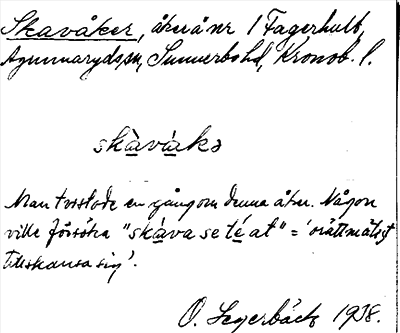 Skavåker, åker å nr 1 Fagerhult,
Agunnaryds sn, Sunnerbo hd, Kronob. l.
skàváks
Man tvistade en gång om denna åker. Någon
ville försöka "skáva se té at" = 'orättmätigt
tillskansa sig'.
O. Segerbäck 1938.